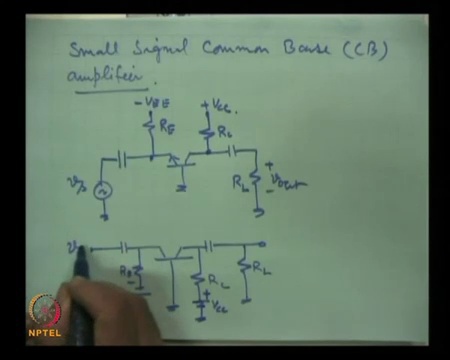 Small Signal Common Base (CB)
amplifier.
-VEE +VCC
RE RC
vs RL + vout -
v
RE RC RL
+ VCC
NPTEL